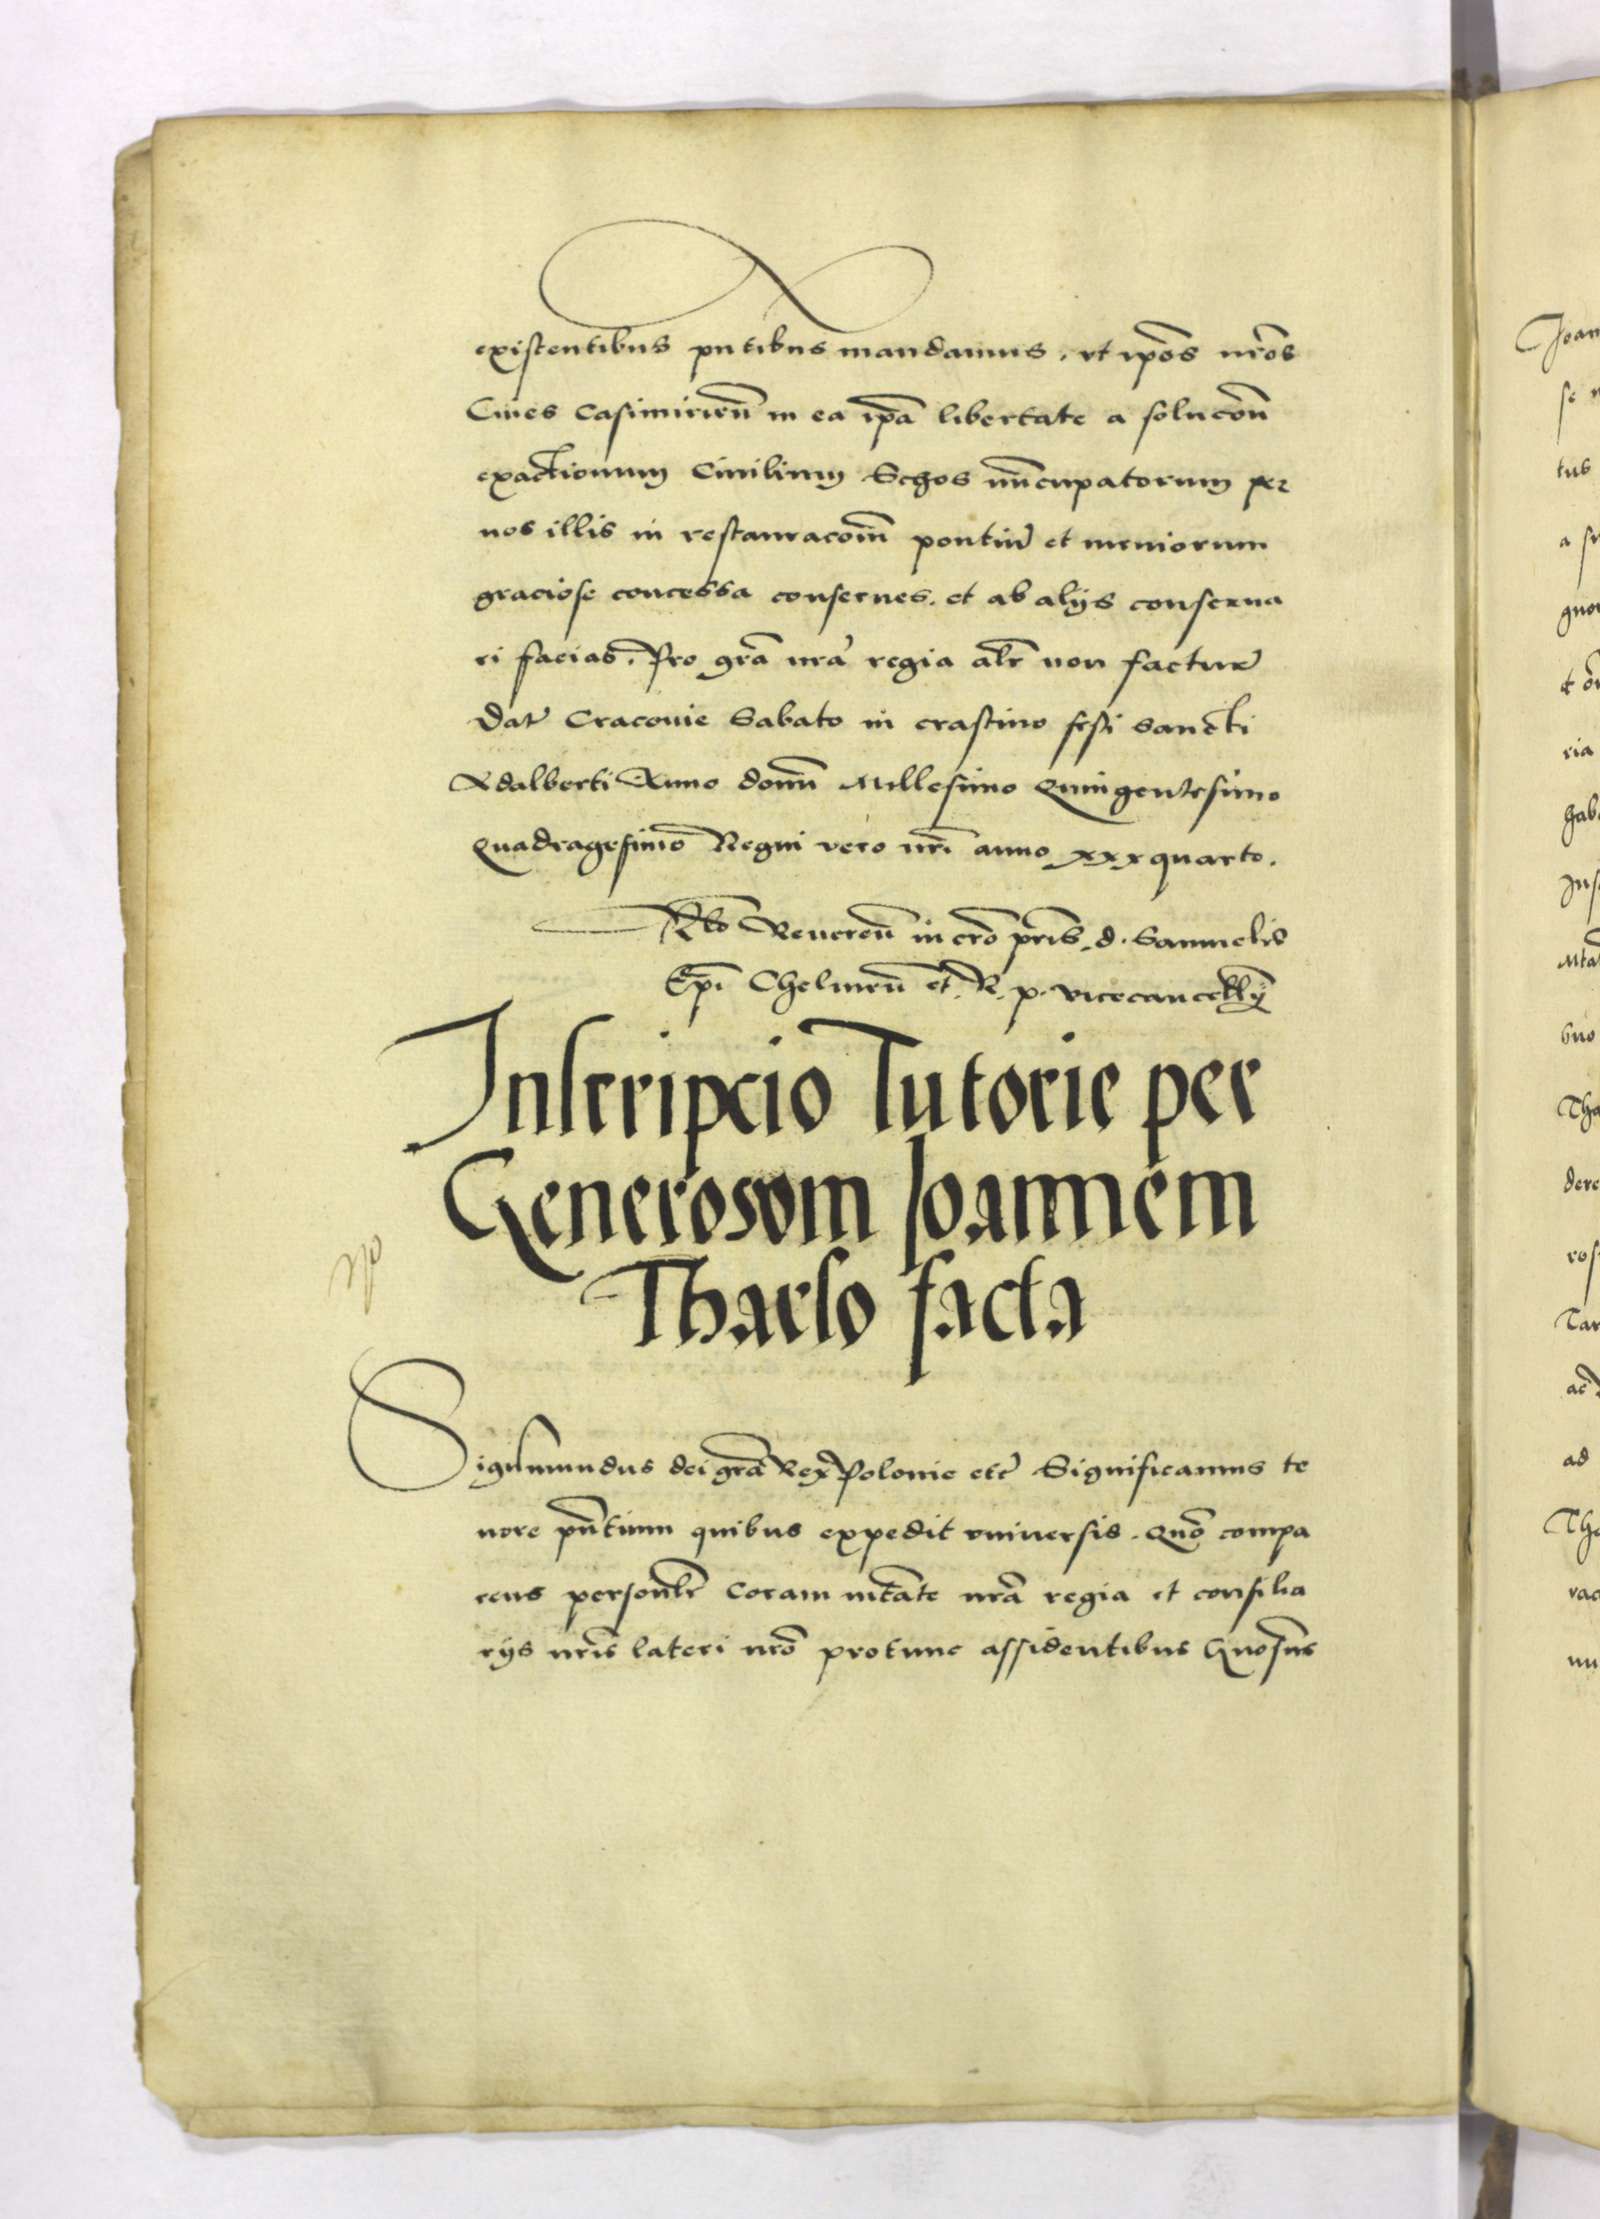 existentibus pntibus mandamus. vt ipõs nrõs
Ciues Casimirieñ in ea ipã libertate a solucoñ
exactionum Ciuilium Schos nũcupatorum per
nos illis in restauracoẽm pontiũ et meniorum
graciose concessa conserues. et ab alijs conserua
ri facias. Pro grã nrã regia alr̃ non factur̃
Dat̃ Cracouie Sabato in crastino festi Sancti
Adalberti Anno domĩ Millesimo Quingentesimo
Quadragesimo Regni vero nrĩ anno xxx quarto.
Rẽlo Reuereñ in crõ prĩs. d. Samuelis
Epĩ Chelmeñ et. R. p. vicecancellrÿ
Inscripcio Tutorie per
Generosvm Joannem
Tharlo facta
Sigismundus dei grã Rex Polonie etc̃ Significamus te
nore pñtium quibus expedit vniuersis. Quõ compa
rens personlr̃ Coram mtãte nrã regia et consilia
rijs nrĩs lateri nrõ protunc assidentibus Gnosus